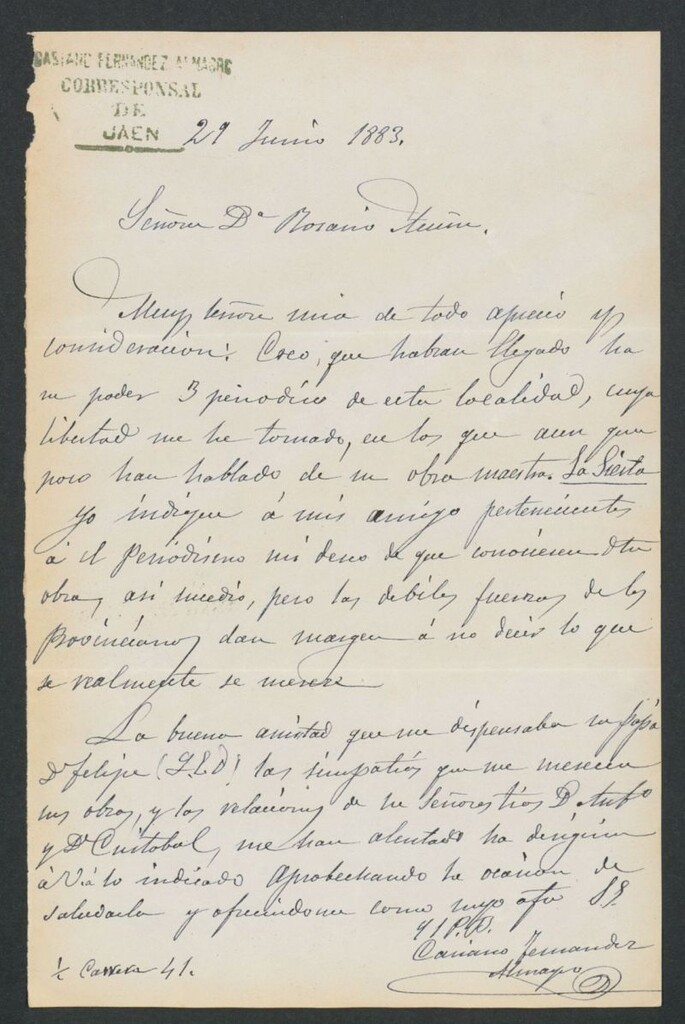 CASIANO FERNANDEZ ALMAGRO
CORRESPONSAL
DE
JAEN
29 Junio 1883.
Señora Dª Rosario Acuña.
Muy señora mia de todo aprecio y
consideracion: Creo, que habran llegado ha
su poder 3 periodicos de esta localidad, cuya
libertad me he tomado, en los que aun que
poco han hablado de su obra maestra. La Siesta
Yo indique á mis amigos pertenecientes
á el Periodismo mi deseo de que conociesen
obra, asi sucedio, pero las debiles fuerzas de los
Provincianos dan margen á no decir lo que
se realmente se merece
La buena amistad que me dispensaba su papá
Dn Felipe las simpatias que me merecen
sus obras, y las relaciones de sus Señores tios D. Antº
y Dn Cristobal, me han alentado ha dirigirme
á Vd lo indicado aprobechando la ocasion de
saludarla y ofreciendome como suyo afmo S.S.
Q.S.P.B.
Casiano Fernandez
Almagro
Carrera 41.